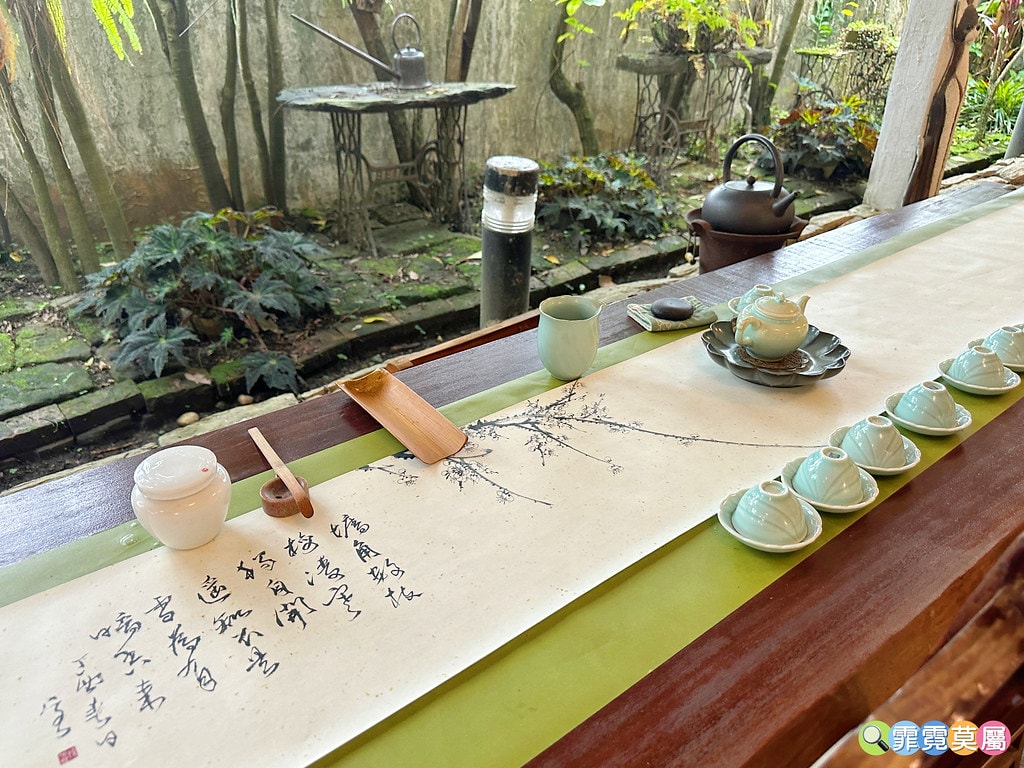 墻角數枝
梅凌寒
獨自開
遙知不是
雪為有
暗香來
丁酉春日
霏霓莫屬